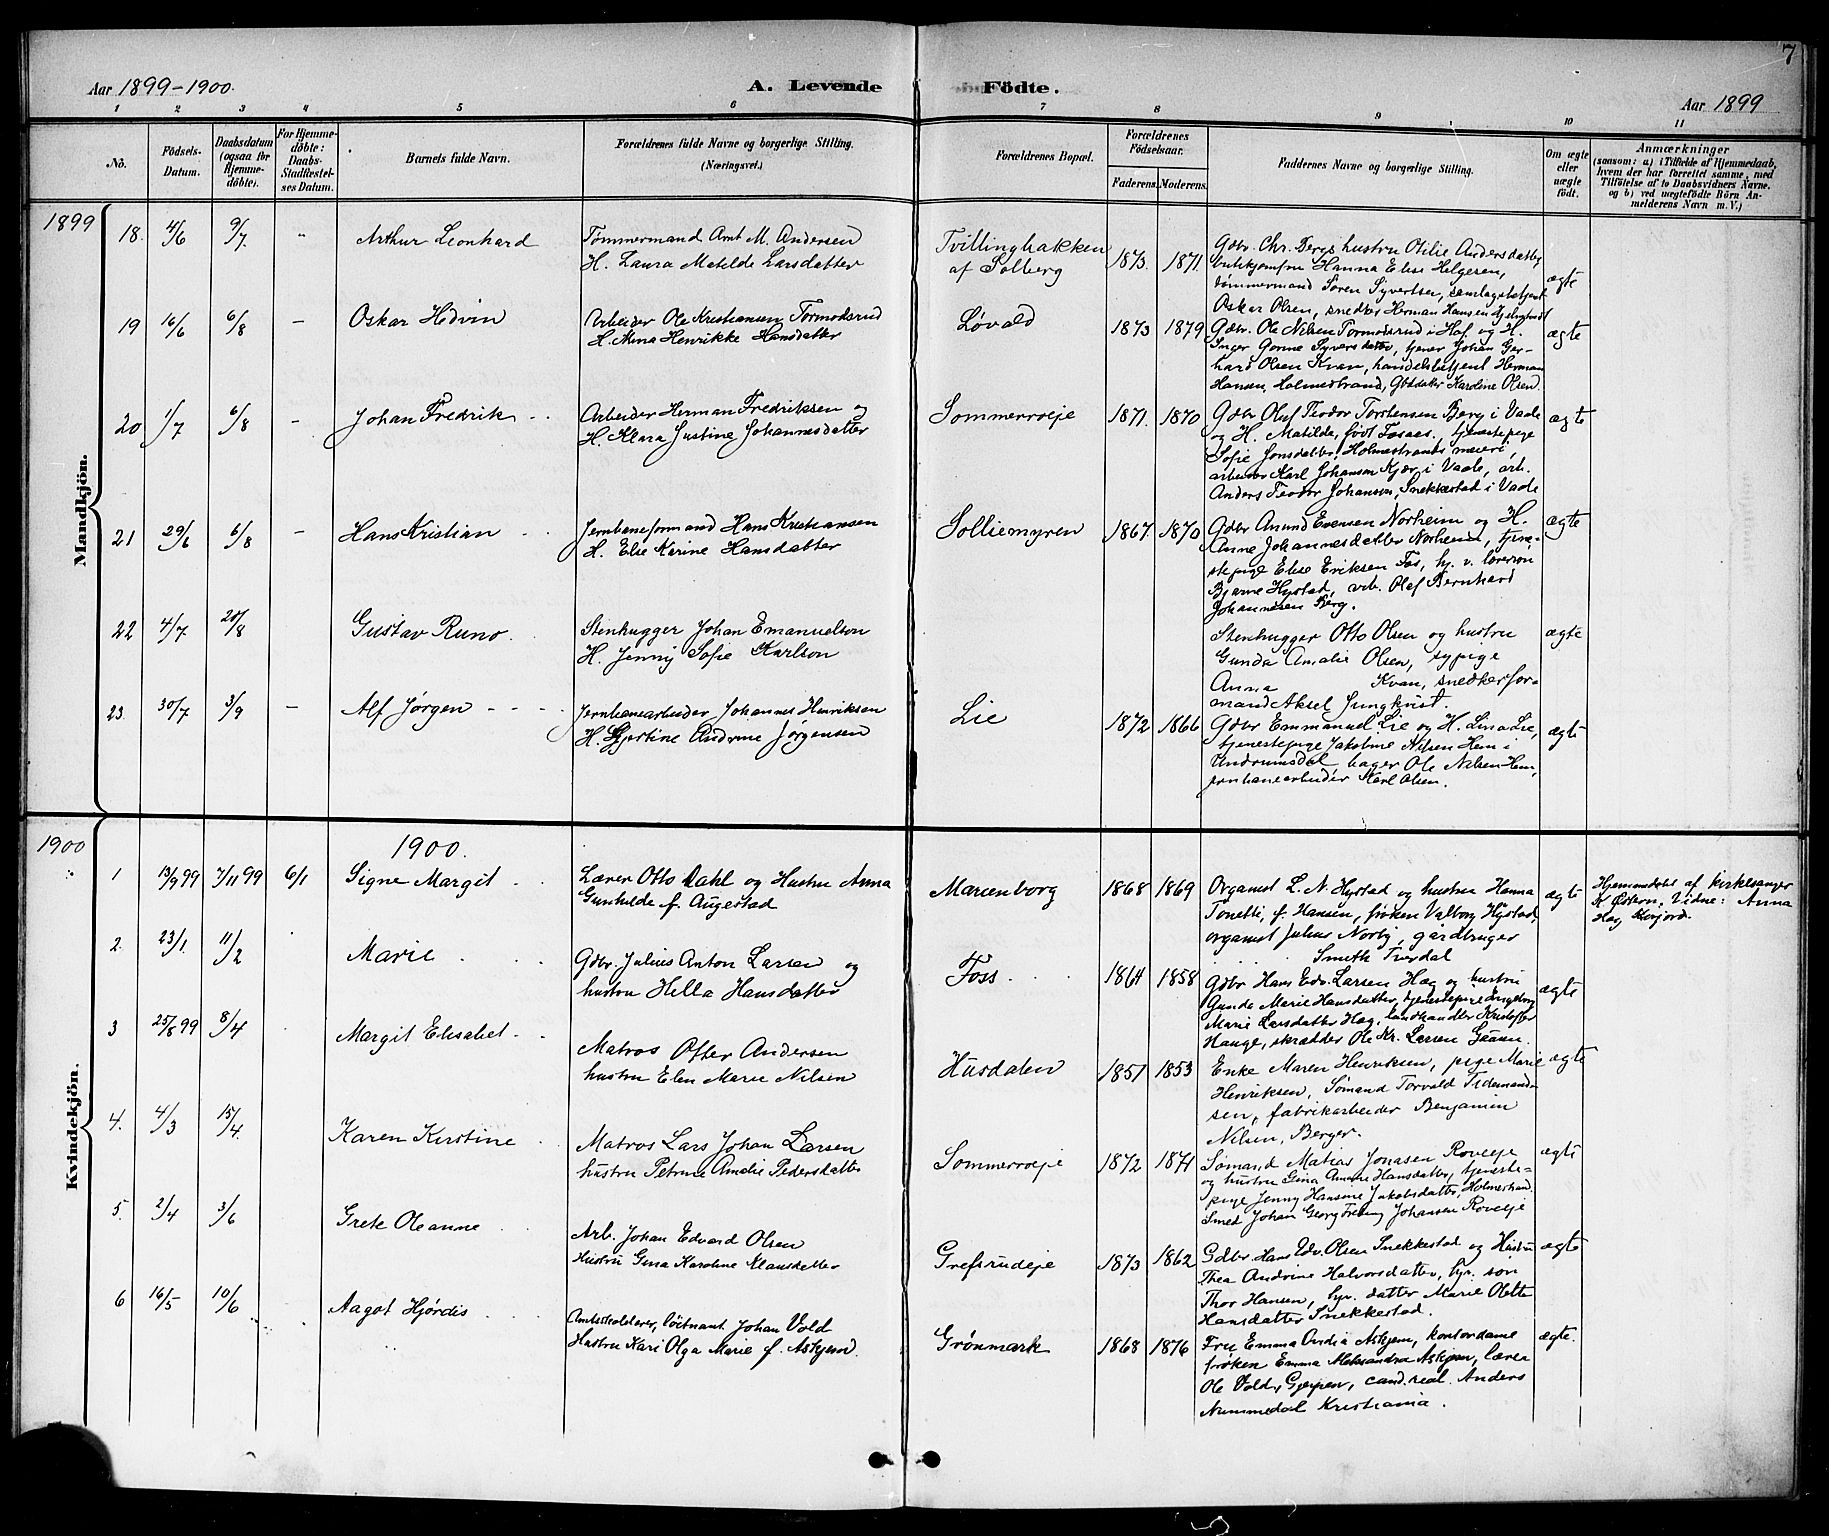 7
Aar 1899-1900.
A. Levende Födte.
Aar 1899
1 2 3 4 5 6 7 8 9 10 11
No.
Födsels-Datum.
Daabsdatum (ogsaa for Hjemme-döbte).
For Hjemme-döbte: Daabs-Stadfæstel-ses Datum.
Barnets fulde Navn.
Forældrenes fulde Navne og borgerlige Stilling. (Næringsvei.)
Forældrenes Bopæl.
Forældrenes Födselsaar.
Faderens. Moderens.
Faddernes Navne og borgerlige Stilling.
Om ægte eller uægte födt.
Anmærkninger
(saasom: a) i Tilfælde af Hjemmedaab,
hvem der har forrettet samme, med
Tilföielse af to Daabsvidners Navne.
og b) ved uægtefödte Börn An-
melderens Navn m. V.)
Mandkjön.
1899
18. 4/6 9/7 " Arthur Leonhard
Tømmermand Arnt M. Andersen
H. Laura Matilde Larsdatter
Tvillingbakken
af Solberg
1873. 1871.
Gdbr. Chr. Bergs hustru Otilie Andersdatter
butikjomfru Hanna Elise Helgesen,
tømmermand Søren Syvertsen, samlagsbetjent
Oskar Olsen, snedker Herman Hansen
ægte
19 16/6 6/8 - Oskar Hedvin
Arbeider Ole Kristiansen Tormodsrud
H. Mina Henrikke Hansdatter
Løvald
1873 1879
Gdbr. Ole Nilsen Tormodsrud i Hof og H.
Inger Gorine Syversdatter, tjener Johan Ger-
hard Olsen Kvan, handelsbetjent Herman
Hansen, Holmestrand, Gbdatter Karoline Olsen.
ægte
20 1/7 6/8 - Johan Fredrik
Arbeider Herman Fredriksen og
H. Klara Justine Johannesdatter
Sommerroeje
1871. 1870
Gdbr Oluf Teodor Torstensen Berg i Vaale
og H. Matilda, født Fosaas, tjenestepige
Sofie Jonsdatter, Holmestrands meieri
arbeider Karl Johansen Kjær i Vaale, arb.
Anders Teodor Johansen, Snekkestad i Vaale
ægte
21 29/6 6/8 - Hans Kristian
Jernbaneformand Hans Kristiansen
H. Else Karine Hansdatter
Solliemyren
1867. 1870
Gdbr Amund Evensen Norheim og H.
Anne Johannesdatter Norheim, tjene-
stepige Elise Eriksen Fos, hj. v. lærersøn
Bjarne Hystad, arb. Olaf Bernhard
Johannesen Berg.
ægte
22 4/7 20/8 Gustav Runo.
Stenhugger Johan Emanuelson
H. Jenny Sofie Karlson
Stenhugger Otto Olsen og hustru
Gunda Amalie Olsen, sypige
Anna Kvan, snedkerfor-
mand Aksel Ljungkvist.
ægte
23. 30/7 3/9 - Alf Jørgen
Jernbanearbeider Johannes Henriksen
H. Andrine Jørgensen
Lie
1872 1866
Gdbr Emmanuel Lie og H. Lina Lie,
tjenestepige Jakobine Nilsen Hem i
Undrumsdal, bager Ole Nilsen Hem,
jernbanearbeider Karl Olsen.
ægte
Kvindekjön.
1900
1900.
1 13/9 99 7/11 99 6/1 Signe Margit
Lærer Otto Dahl og Hustru Anna
Gunhilde f. Augestad
Marienborg
1868 1869
Organist L. N. Hystad og hustru Hanna
Tonette, f. Hansen, frøken Valborg Hystad,
organist Julius Norby, gårdbruger
Smith Tverdal
ægte
Hjemmedøbt af kirkesanger
K. Østern, Vidne: Anna
2. 23/1 11/2 Marie
Gdbr. Julius Anton Larsen og
hustru Hella Hansdatter
Foss
1864 1858
Gdbr Hans Edv. Larsen Hæg og hustru
Gunda Marie Hansdatter, tjenestepige Ingeborg
Marie Larsdatter Hæg, landhandler Kristoffer
Hauge, skrædder Ole Kr. Larsen Graan.
ægte
3 25/8 99 8/4 Margit Elisabet
Matros Ofter Andersen
hustru Elen Marie Nilsen
Husdalen
1851 1853
Enke Maren Henriksen, pige Marie
Henriksen, Sømand Torvald Tidemand-
sen, fabrikarbeider Benjamin
Nilsen, Berger.
ægte
4. 4/3 15/4. Karen Kirstine
Matros Lars Johan Larsen
hustru Petrine Amalie Pedersdatter
Sommerroeje
1872 1871
Sømand Matias Jonasen Roveje
og hustru Gina Amalie Hansdatter, tjeneste-
pige Jenny Hansine Jakobsdatter, Holmestrand.
Smed Johan Georg Johansen Roveje
ægte
5. 2/4 3/6 Grete Oleanne
Arb. Johan Edvard Olsen
Hustru Gina Karoline Klausdatter
Grefsrudeje
1873 1862
Gdbr. Hans Edv. Olsen Snekkestad og Hustru
Thea Andrine Halvorsdatter, hjr. søn
Thor Hansen, hjr. datter Marie Olette
Hansdatter Snekkestad.
ægte
6 16/5 10/6 Aagot Hjørdis
Amtsskolelærer, løitnant Johan Vold
Hustru Kari Olga Marie f. Askjem.
Grønmark
1868 1876
Fru Emma Ovidia Askjem, kontordame
frøken Emma Aleksandra Askjem, lærer
Ole Vold, Gjerpen, cand. real. Anders
Nummedal Kristiania.
ægte.